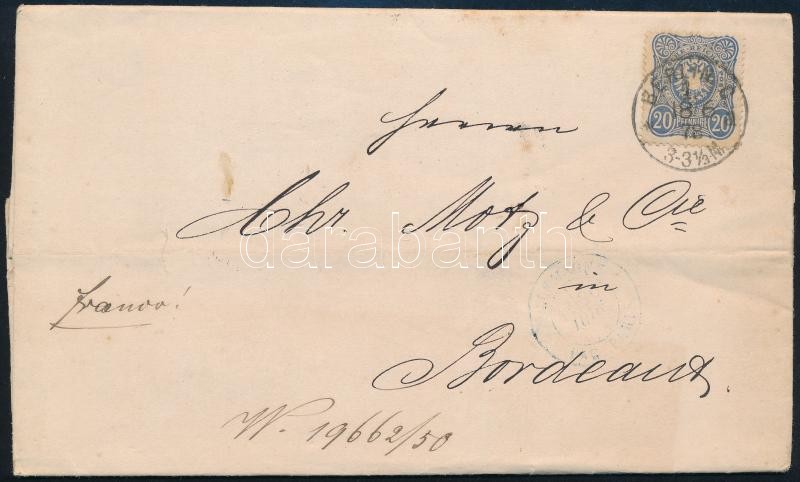 20 PFENNIG 20
3-3½N.
Herren
Chr. Motz & Cie
in
Bordeaux.
franco!
W. 19662/50
darabanth